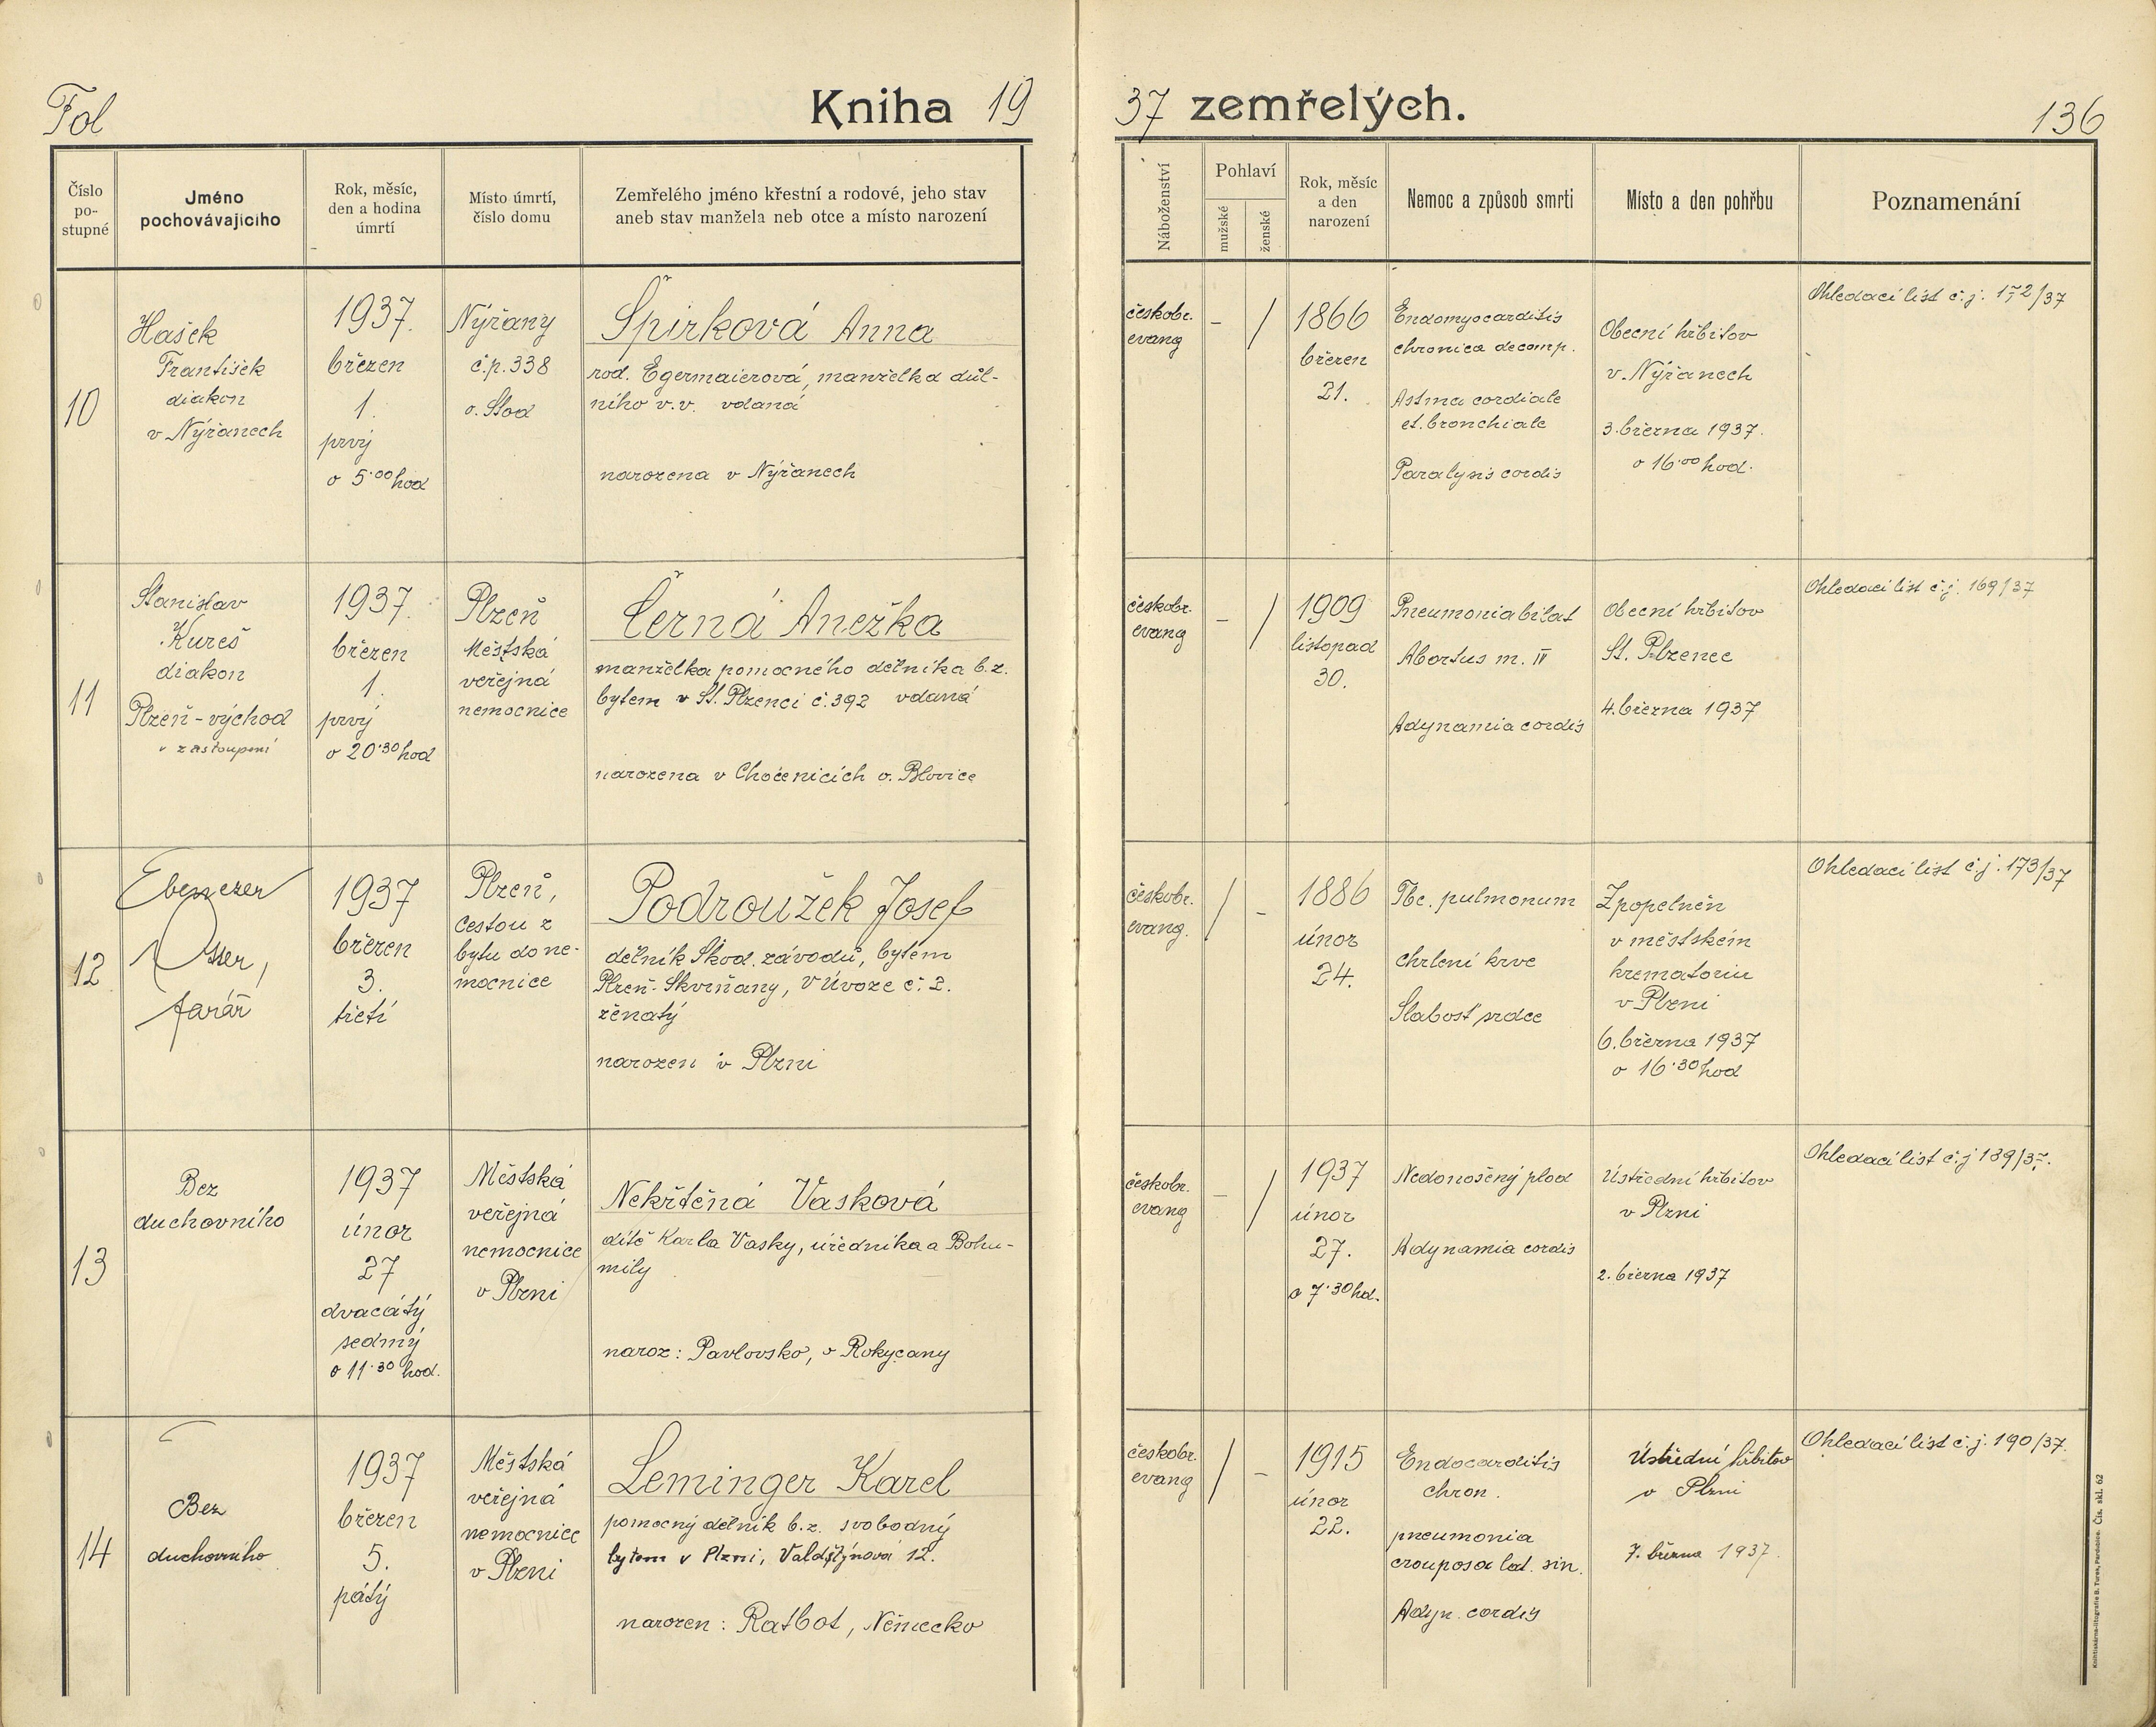 Fol
Kniha 1937 zemřelých.
136
Číslo
po-
stupné
Jméno
pochovávajícího
Rok, měsíc,
den a hodina
úmrtí
Místo úmrtí,
číslo domu
Zemřelého jméno křestní a rodové, jeho stav
aneb stav manžela neb otce a místo narození
Náboženství
Pohlaví
mužské
ženské
Rok, měsíc
a den
narození
Nemoc a způsob smrti
Místo a den pohřbu
Poznamenání
10
Hašek
František
diakon
v Nýřanech
1937.
březen
1.
prvý
o 5·00 hod
Nýřany
č.p. 338
o. Stod
Špirková Anna
rod. Egermaierová, manželka důl-
ního v.v. vdaná
narozena v Nýřanech
českobr.
evang
– /
1866
březen
21.
Endomyocarditis
chronica decomp.
Astma cordiale
et. bronchiale
Paralysis cordis
Obecní hřbitov
v Nýřanech
3. března 1937.
o 16·00 hod.
Ohledací list č.j. 172/37
11
Stanislav
Kureš
diakon
Plzeň-východ
v zastoupení
1937.
březen
1.
prvý
o 20·30 hod
Plzeň
Městská
veřejná
nemocnice
Černá Anežka
manželka pomocného dělníka b.z.
bytem v St. Plzenci č. 392 vdaná
narozena v Chocenicích o. Blovice
českobr.
evang
– /
1909
listopad
30.
Pneumonia bilat
Abortus m. IV
Adynamia cordis
Obecní hřbitov
St. Plzenec
4. března 1937
Ohledací list č.j. 169/37
12
Ebenezer
farář
1937
březen
3.
třetí
Plzeň,
cestou z
bytu do ne-
mocnice
Podroužek Josef
dělník Škod. závodů, bytem
Plzeň-Skvrňany, V Úvoze č. 2.
ženatý
narozen v Plzni
českobr.
evang.
/ –
1886
únor
24.
Tbc. pulmonum
chrlení krve
Slabost srdce
Zpopelněn
v městském
krematoriu
v Plzni
6. března 1937
o 16·30 hod
Ohledací list č.j. 173/37
13
Bez
duchovního
1937
únor
27
dvacátý
sedmý
o 11·30 hod.
Městská
veřejná
nemocnice
v Plzni
Nekřtěná Vasková
dítě Karla Vasky, úředníka a Bohu-
mily
naroz: Pavlovsko, o Rokycany
českobr.
evang
– /
1937
únor
27.
o 7·30 hd.
Nedonošený plod
Adynamia cordis
Ústřední hřbitov
v Plzni
2. března 1937
Ohledací list č.j 189/37.
14
Bez
duchovního
1937
březen
5.
pátý
Městská
veřejná
nemocnice
v Plzni
Leminger Karel
pomocný dělník b.z. svobodný
bytem v Plzni, Valdštýnova 12.
narozen: Ratbot, Německo
českobr.
evang
/ –
1915
únor
22.
Endocarditis
chron.
pneumonia
crouposa lat. sin.
Adyn. cordis
Ústřední hřbitov
v Plzni
7. března 1937.
Ohledací list č.j. 190/37.
Knihtiskárna-litografie B. Turek, Pardubice. Čís. skl. 62